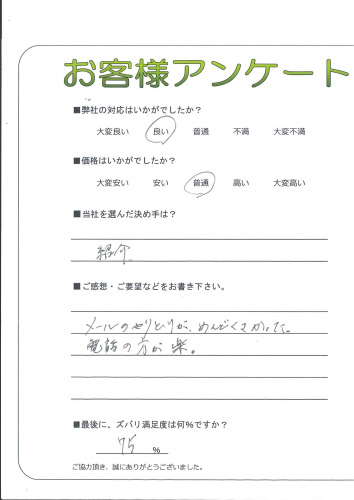 お客様アンケート
■弊社の対応はいかがでしたか？
大変良い 良い 普通 不満 大変不満
■価格はいかがでしたか？
大変安い 安い 普通 高い 大変高い
■当社を選んだ決め手は？
紹介
■ご感想・ご要望などをお書き下さい。
メールのやりとりが、めんどくさかった。
電話の方が楽。
■最後に、ズバリ満足度は何％ですか？
75 ％
ご協力頂き、誠にありがとうございました。